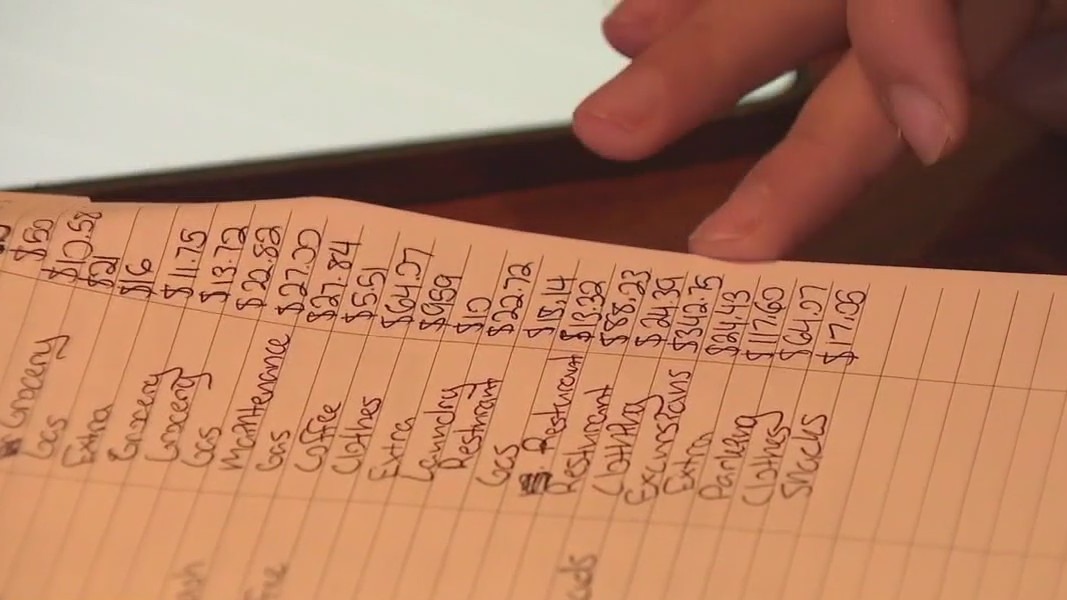 $60
Grocery $10.58
Gas $21
Extra $16
Grocery $11.75
Grocery $13.72
Gas $22.82
Maintenance $27.00
Gas $27.84
Coffee $5.51
Clothes $64.07
Extra $9.59
Laundry $10
Restraunt $22.72
Gas $15.14
Restraunt $13.32
Restraunt $88.23
Clothing $24.39
Excursions $342.75
Extra $24.43
Parking $17.60
Clothes $64.07
Snacks $17.06